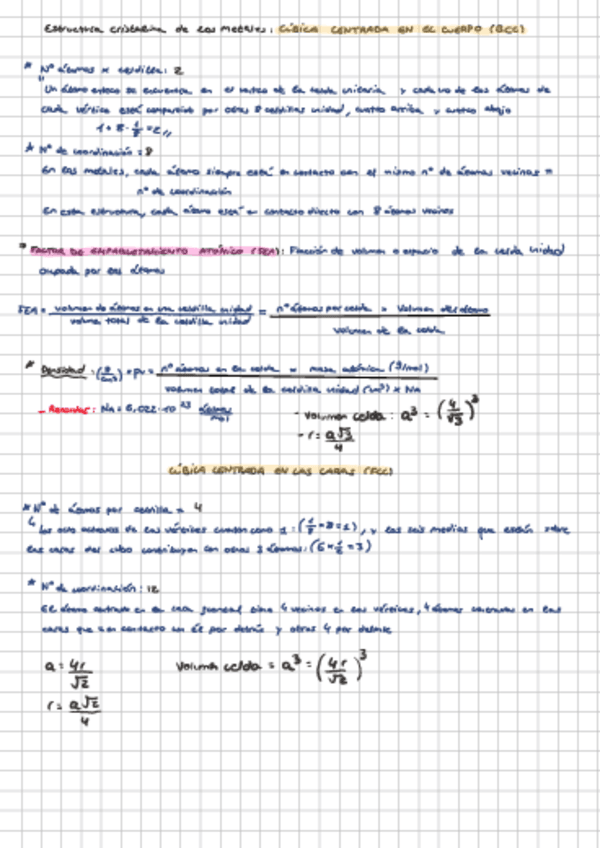 Estructura cristalina de los metales: CÚBICA CENTRADA EN EL CUERPO (BCC)
* Nº átomos x celdilla: 2
Un átomo entero se encuentra en el de la celda unitaria y cada uno de los átomos de
cada vértice está compartido por otras 8 celdillas unidad, cuatro arriba y cuatro abajo
1 + 8 · 1/8 = 2 //
* Nº de coordinación = 8
En los metales, cada átomo siempre está en contacto con el mismo nº de átomos vecinos =
nº de coordinación
En esta estructura, cada átomo está en contacto directo con 8 átomos vecinos
* FACTOR DE EMPAQUETAMIENTO ATÓMICO (FEA): Fracción de volumen o espacio de la celda unidad
ocupada por los átomos
FEA = volumen de átomos en una celdilla unidad / volumen total de la celdilla unidad = nº átomos por celda × Volumen del átomo / volumen de la celda
* Densidad: (g/cm³) = ρv = nº átomos en la celda × masa atómica (g/mol) / volumen total de la celdilla unidad (cm³) × NA
- Recordar: NA = 6,022·10²³ átomos/mol
- Volumen celda: a³ = (4/√3)³
- r = a√3/4
CÚBICA CENTRADA EN LAS CARAS (FCC)
* Nº de átomos por celdilla = 4
Los ocho octavos de los vértices cuentan como 1: (1/8 × 8 = 1), y las seis medias que están sobre
las caras del cubo contribuyen con otros 3 átomos: (6 × 1/2 = 3)
* Nº de coordinación: 12
El átomo centrado en la cara frontal tiene 4 vecinos en los vértices, 4 átomos centrados en las
caras que en contacto con él por detrás y otros 4 por delante
a = 4r/√2
Volumen celda = a³ = (4r/√2)³
r = a√2/4